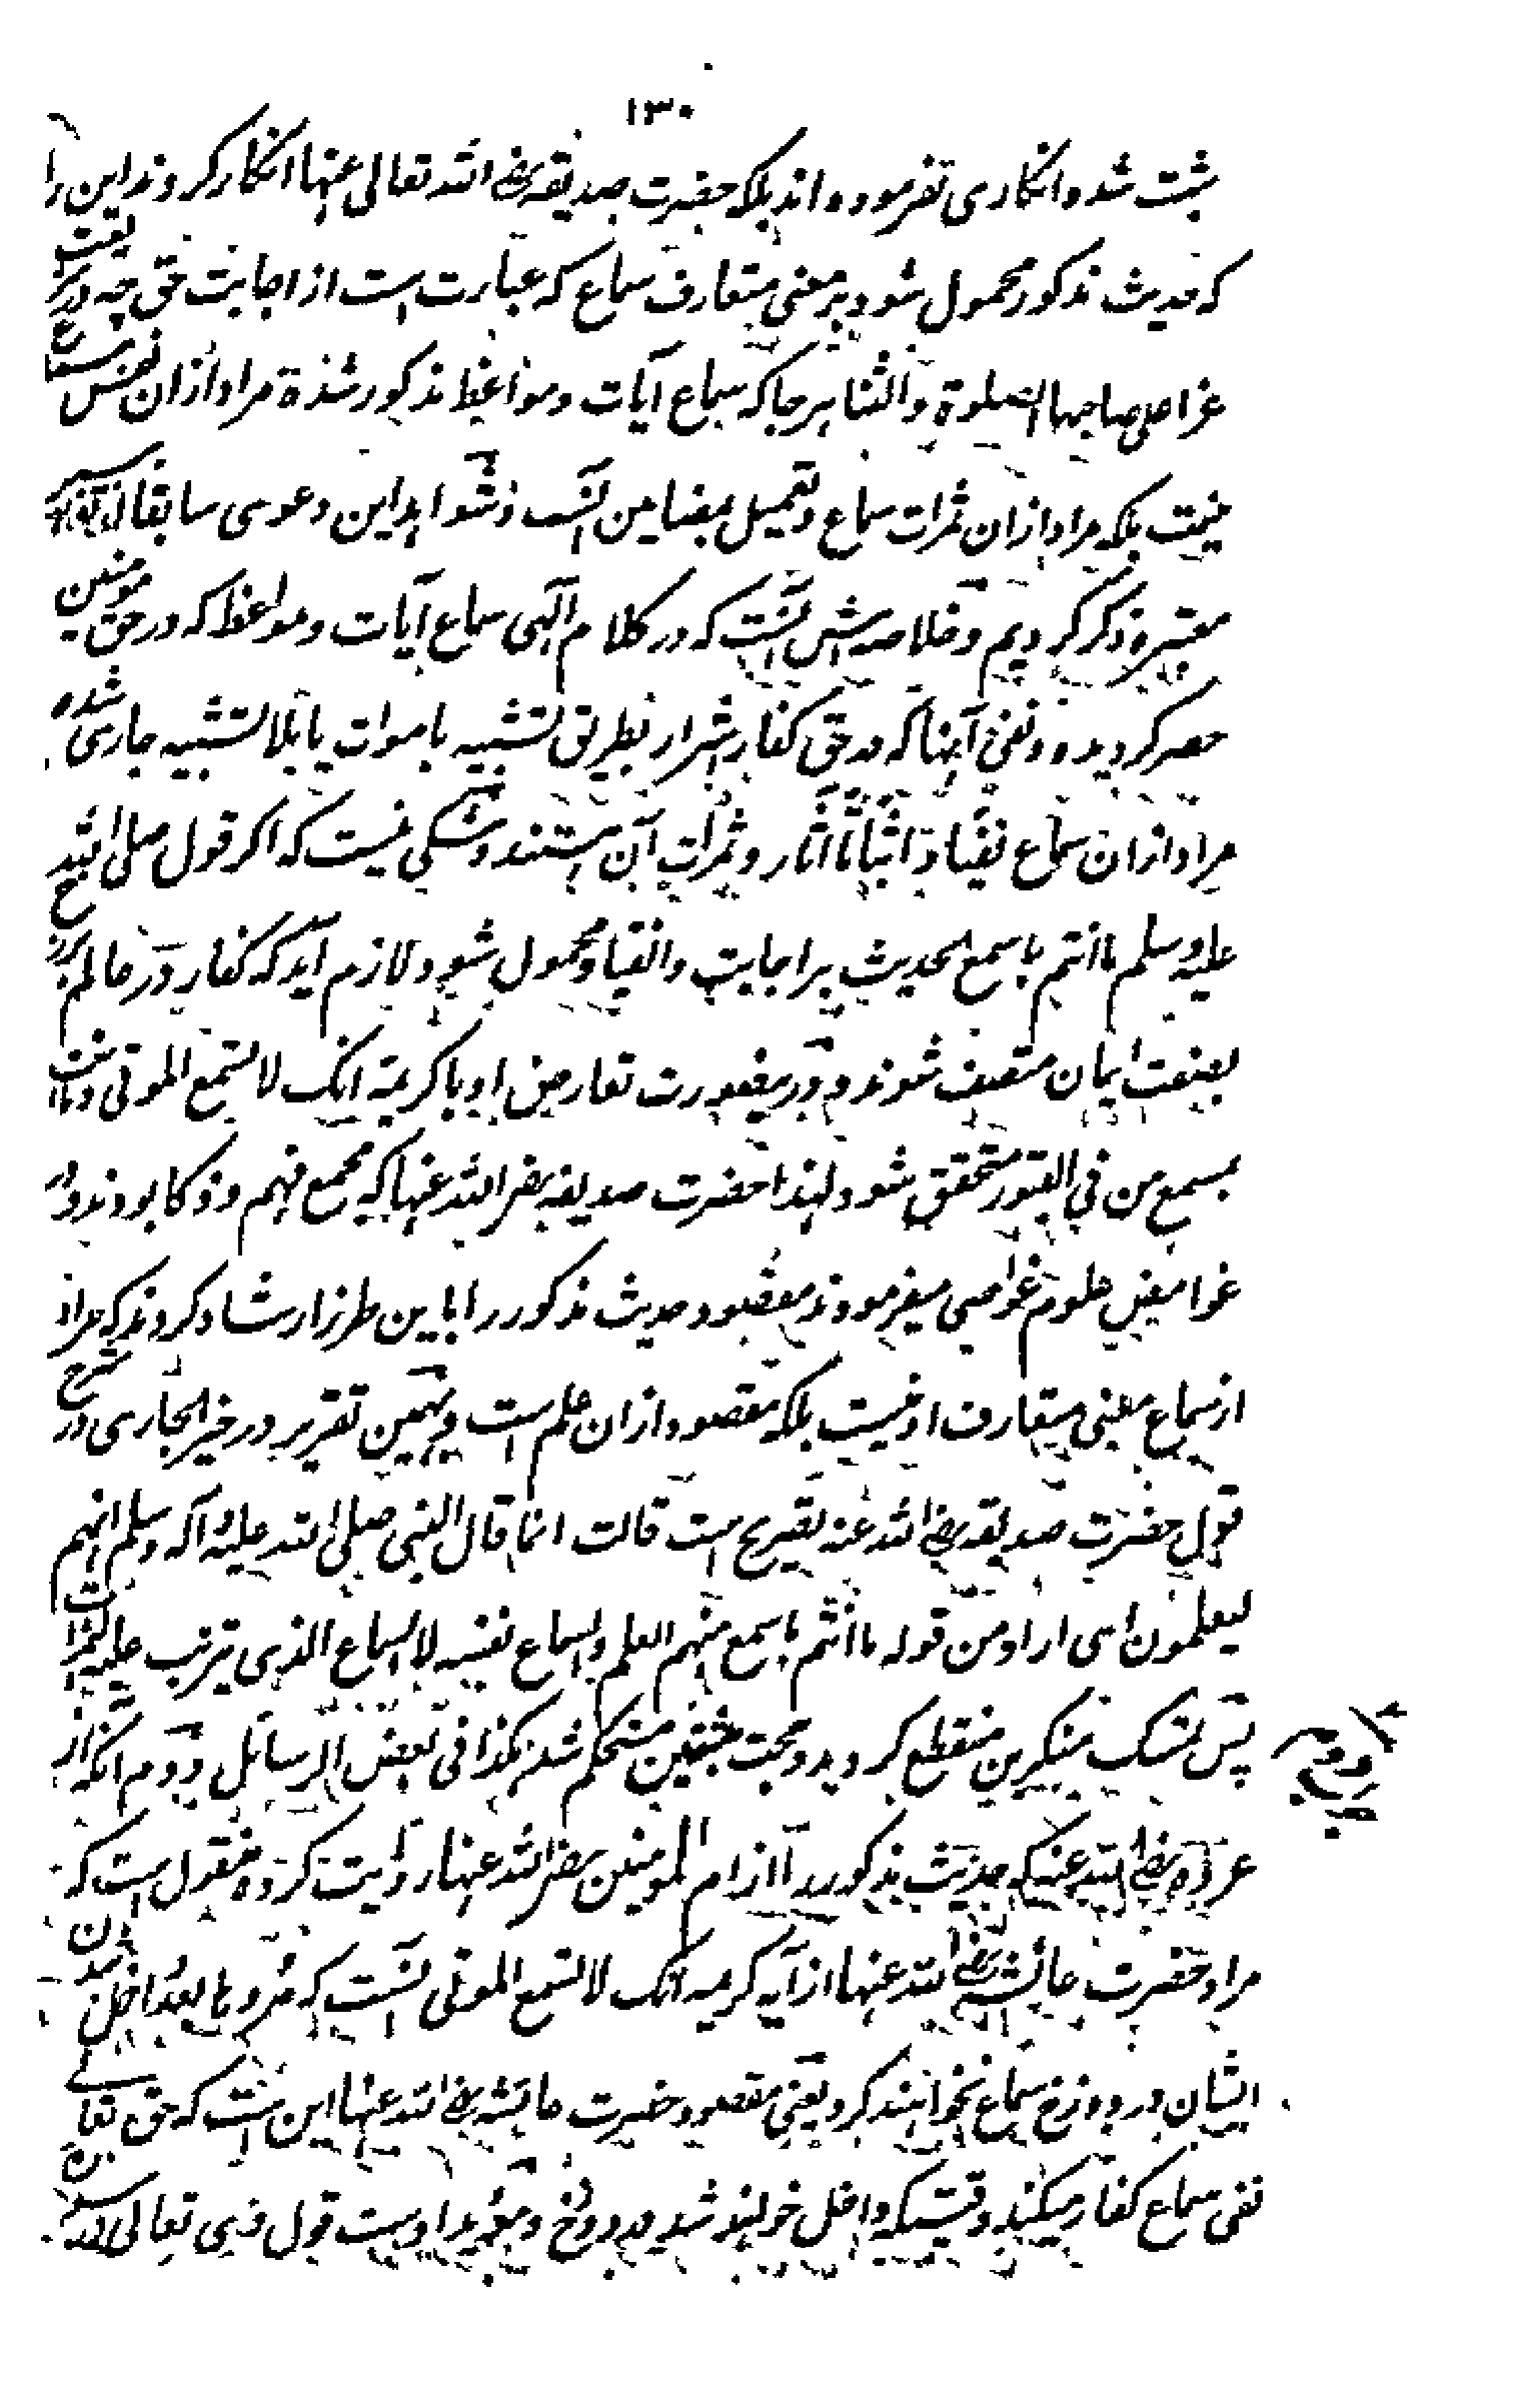 ۱۳۰
ثبت شد و انکاری نفرموده اند بلکه حضرت صدیقه رضی الله تعالی عنها انکار کردند این را
که حدیث مذکور محمول شود بر معنی متعارف سماع که عبارت است از اجابت حق چه در شریعت
غرا علی صاحبها الصلوة والثنا هر جا که سماع آیات و مواعظ مذکور شده مراد ازان نفس سماع
نیست بلکه مراد ازان ثمرات سماع و تعمیل مضامین آنست و شواهد این دعوی سابقا از
معتبره ذکر کردیم و خلاصه اش آنست که در کلام الهی سماع آیات و مواعظ که در حق مومنین
حصر گردیده و نفی آنها که در حق کفار اشرار بطریق تشبیه باموات یا بلا تشبیه جاری شده
مراد ازان سماع نفیًا و اثباتًا آثار و ثمرات آن هستند و شکی نیست که اگر قول صلی الله
علیه وسلم ما انتم باسمع الحدیث بر اجابت و انقیاد محمول شود لازم آید که کفار در عالم برزخ
بصفت ایمان متصف شوند و درینصورت تعارض او با کریمة انک لا تسمع الموتی و ما انت
بسمع من فی القبور متحقق شود لهذا حضرت صدیقه رضی الله عنها که مجمع فهم و ذکا بودند و در
غوامیض علوم غواصی میفرمودند مقصود حدیث مذکور را باین طرز ارشاد کردند که مراد
از سماع معنی متعارف او نیست بلکه مقصود ازان علم است و بهمین تقریر در خیر الجاری در شرح
قول حضرت صدیقه رضی الله عنه تصریح است قالت انما قال النبی صلی الله علیه و آله وسلم انهم
لیعلمون ای اراد من قوله ما انتم باسمع منهم العلم والسماع نفسه لا السماع الذی یترتب علیه الثمرات
پس تمسک منکرین منقطع گردید و حجت مثبتین مستحکم شد هکذا فی بعض الرسائل و دوم آنکه از
عروه رضی الله عنه که حدیث مذکور را از ام المومنین رضی الله عنها روایت کرده منقول است که
مراد حضرت عایشه رضی الله عنها از آیه کریمه انک لا تسمع الموتی آنست که مردها بعد داخل شدن
ایشان در دوزخ سماع نخواهند کرد یعنی مقصود حضرت عایشه رضی الله عنها این است که حق تعالی
نفی سماع کفار میکند وقتیکه داخل خواهند شد در دوزخ و موید اوست قول